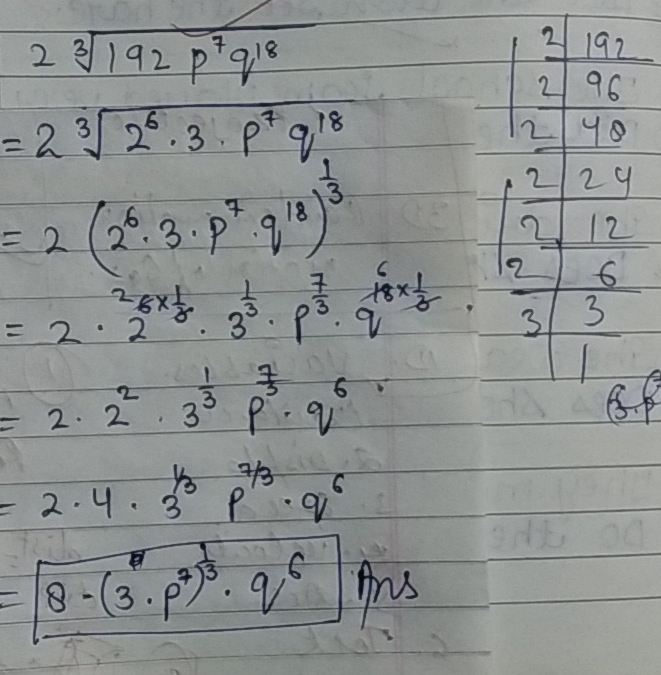 2 ∛(192 p⁷ q¹⁸)
= 2 ∛(2⁶ · 3 · p⁷ q¹⁸)
= 2 (2⁶ · 3 · p⁷ · q¹⁸)^(1/3)
= 2 · 2^(6×1/3) · 3^(1/3) · p^(7/3) · q^(18×1/3) ·
= 2 · 2² · 3^(1/3) p^(7/3) · q⁶ ·
= 2 · 4 · 3^(1/3) p^(7/3) · q⁶
= 8 · (3 · p⁷)^(1/3) · q⁶ Ans
2 | 192
2 | 96
2 | 48
2 | 24
2 | 12
2 | 6
3 | 3
1